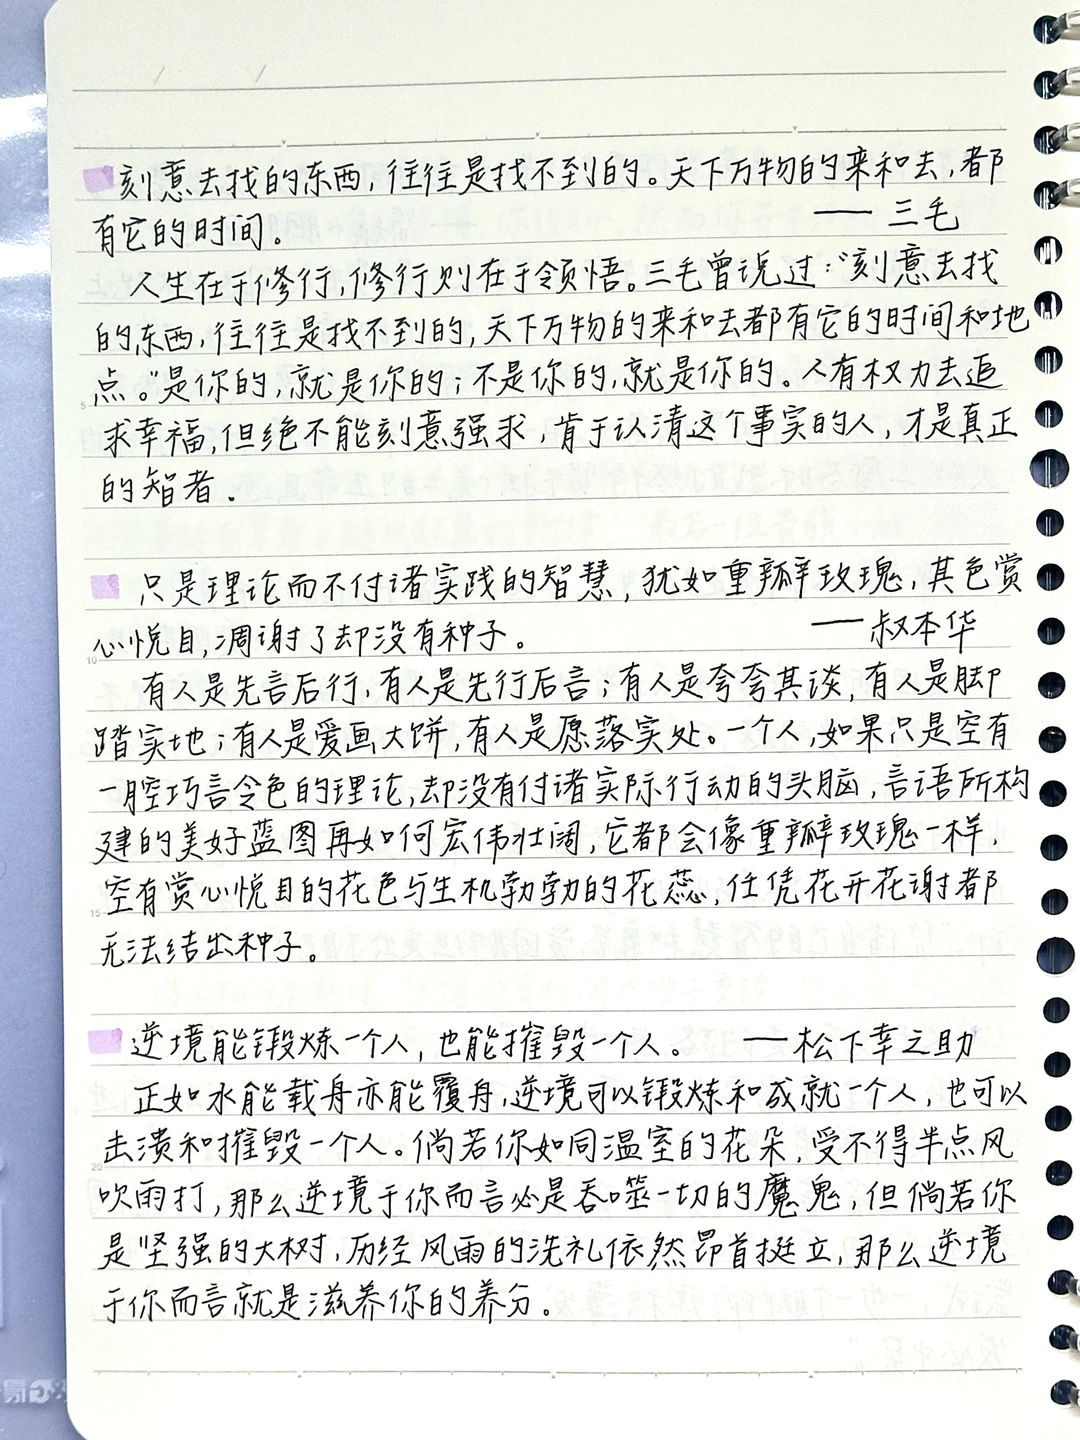 刻意去找的东西,往往是找不到的。天下万物的来和去,都
有它的时间。 —— 三毛
人生在于修行,修行则在于领悟。三毛曾说过:“刻意去找
的东西,往往是找不到的,天下万物的来和去都有它的时间和地
点。”是你的,就是你的;不是你的,就是你的。人有权力去追
求幸福,但绝不能刻意强求,肯于认清这个事实的人,才是真正
的智者.
只是理论而不付诸实践的智慧,犹如重瓣玫瑰,其色赏
心悦目,凋谢了却没有种子。 ——叔本华
有人是先言后行,有人是先行后言;有人是夸夸其谈,有人是脚
踏实地;有人是爱画大饼,有人是愿落实处。一个人,如果只是空有
一腔巧言令色的理论,却没有付诸实际行动的头脑,言语所构
建的美好蓝图再如何宏伟壮阔,它都会像重瓣玫瑰一样,
空有赏心悦目的花色与生机勃勃的花蕊,任凭花开花谢都
无法结出种子。
逆境能锻炼一个人,也能摧毁一个人。 ——松下幸之助
正如水能载舟亦能覆舟,逆境可以锻炼和成就一个人,也可以
击溃和摧毁一个人。倘若你如同温室的花朵,受不得半点风
吹雨打,那么逆境于你而言必是吞噬一切的魔鬼,但倘若你
是坚强的大树,历经风雨的洗礼依然昂首挺立,那么逆境
于你而言就是滋养你的养分。
5
10
15
20